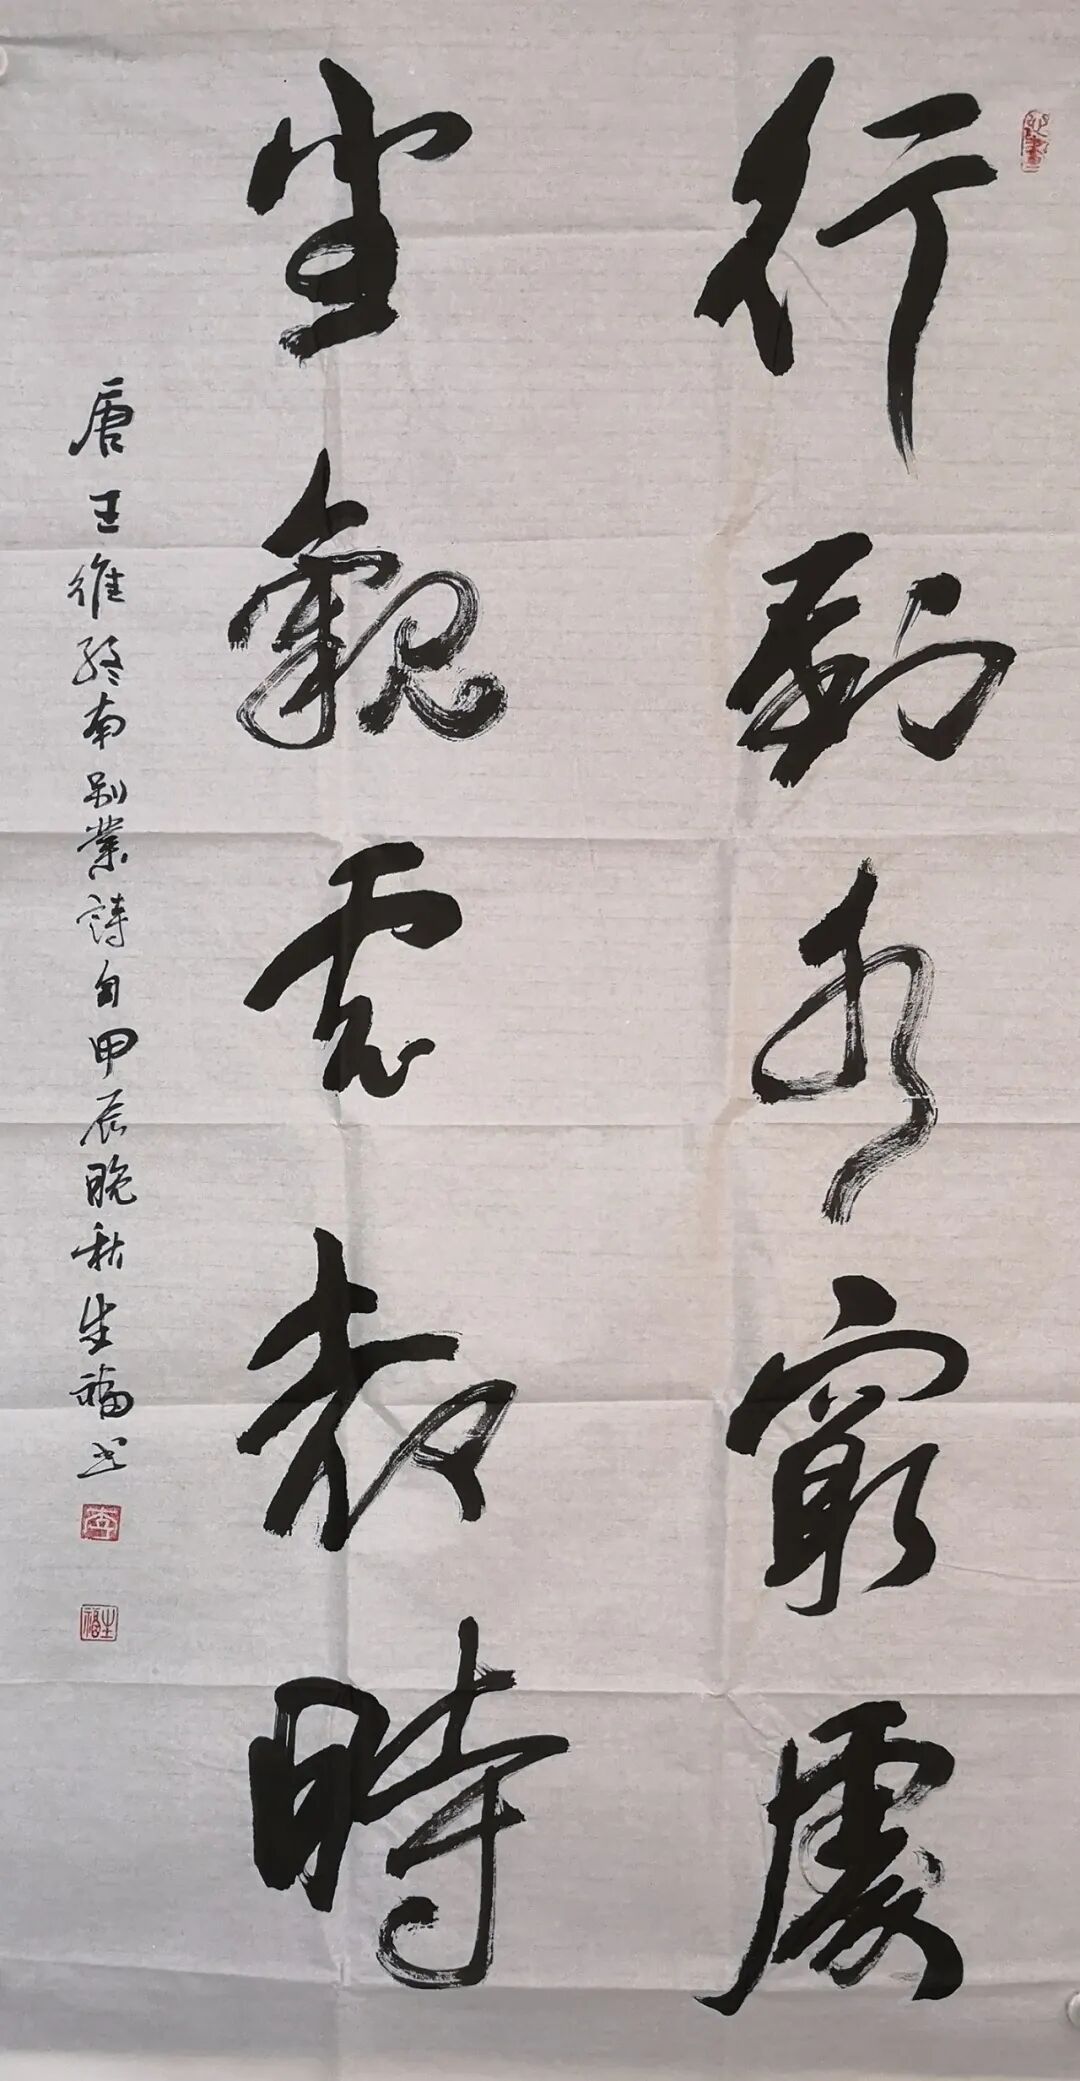 行到水窮處
坐觀雲散時
唐王維終南別業詩句甲辰晚秋生福书
生福